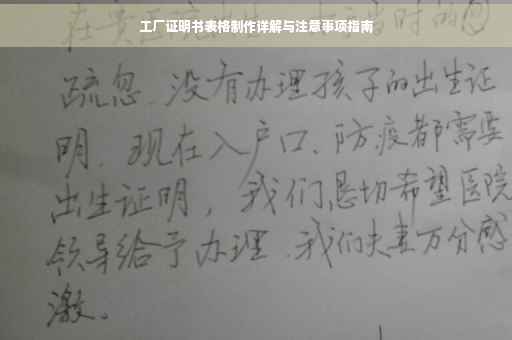 工厂证明书表格制作详解与注意事项指南
当时的
疏忽、没有办理孩子的出生证
明、现在入户口、防疫都需要
出生证明，我们恳切希望医院
领导给予办理、我们夫妻万分感
激。